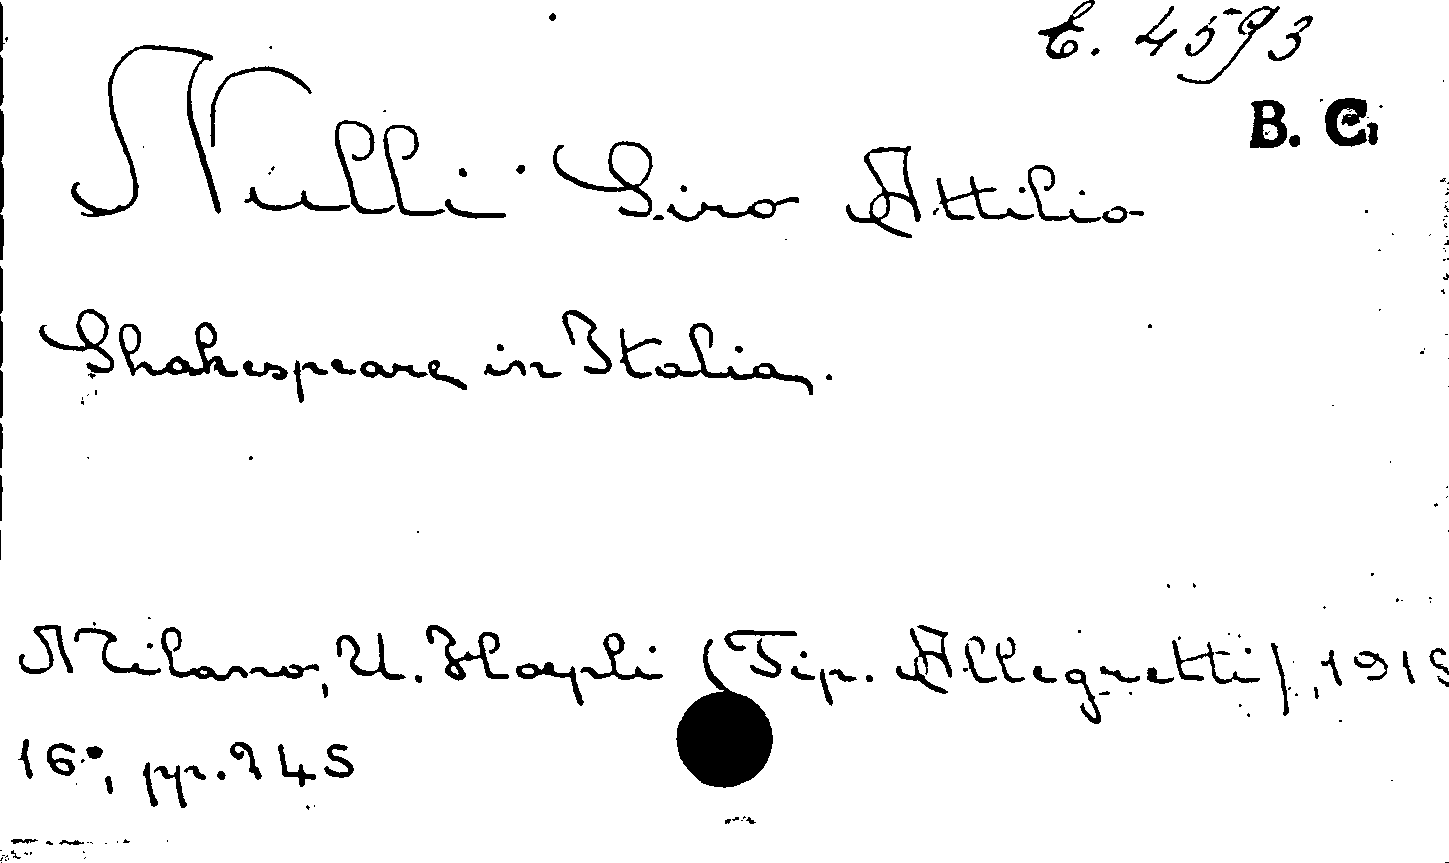 E. 4593
B. C.
Nulli Siro Attilio
Shakespeare in Italia.
Milano, U. Hoepli (Tip. Allegretti), 1918
16°, pp. 245